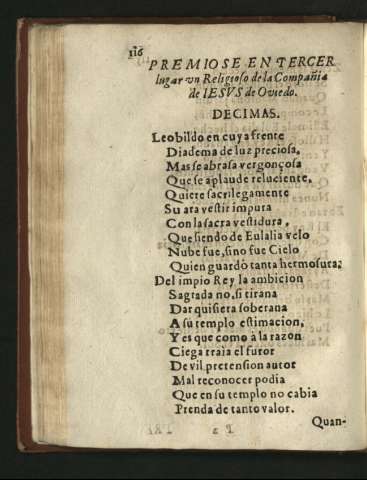 116
PREMIOSE EN TERCER
lugar vn Religioso de la Compañia
de IESVS de Oviedo.
DECIMAS.
Leobildo en cuya frente
Diadema de luz preciosa,
Mas se abrasa vergonçosa
Que se aplaude reluciente,
Quiere sacrilegamente
Su ara vestir impura
Con la sacra vestidura,
Que siendo de Eulalia velo
Nube fue, sino fue Cielo
Quien guardò tanta hermosura;
Del impio Rey la ambicion
Sagrada no, si tirana
Dar quisiera soberana
A su templo estimacion,
Y es que como à la razon
Ciega traia el furor
De vil pretension autor
Mal reconocer podia
Que en su templo no cabia
Prenda de tanto valor.
Quan-